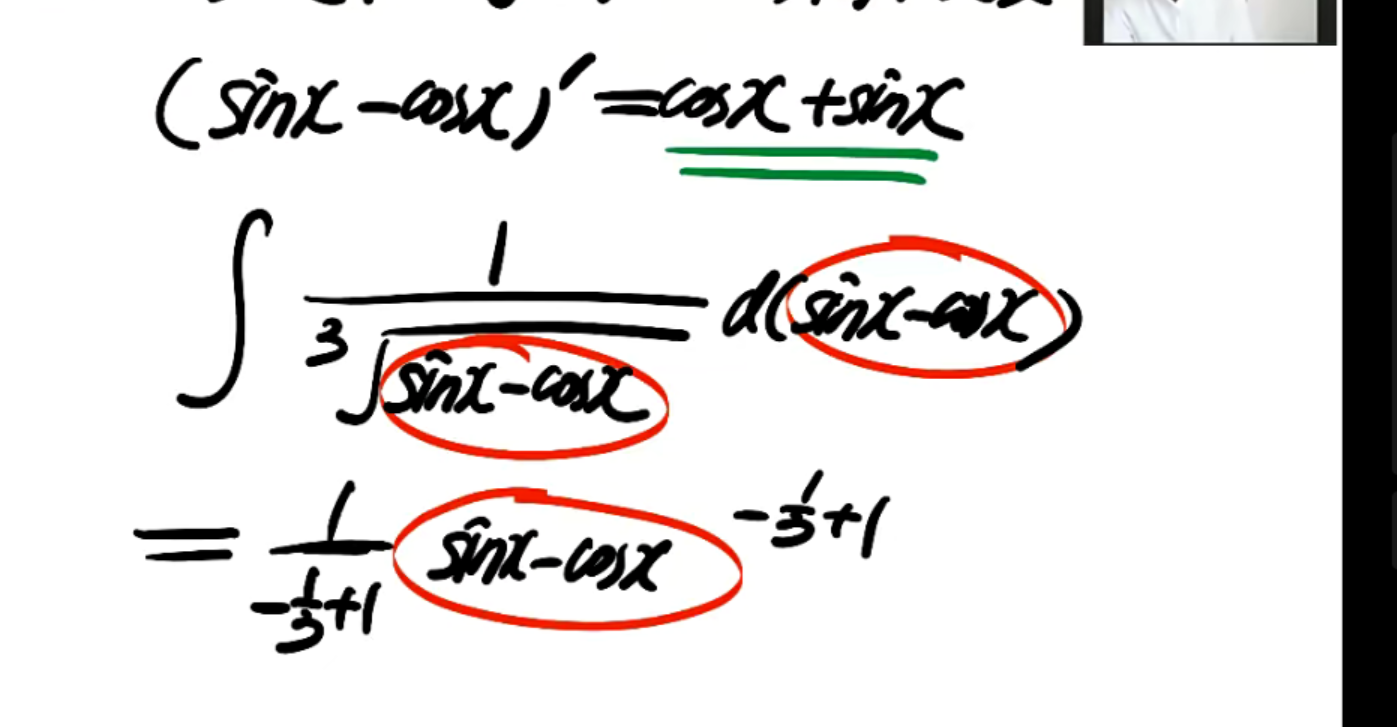 (sinx-cosx)′=cosx+sinx
∫ 1/∛(sinx-cosx) d(sinx-cosx)
= 1/(-1/3+1) (sinx-cosx)^(-1/3+1)